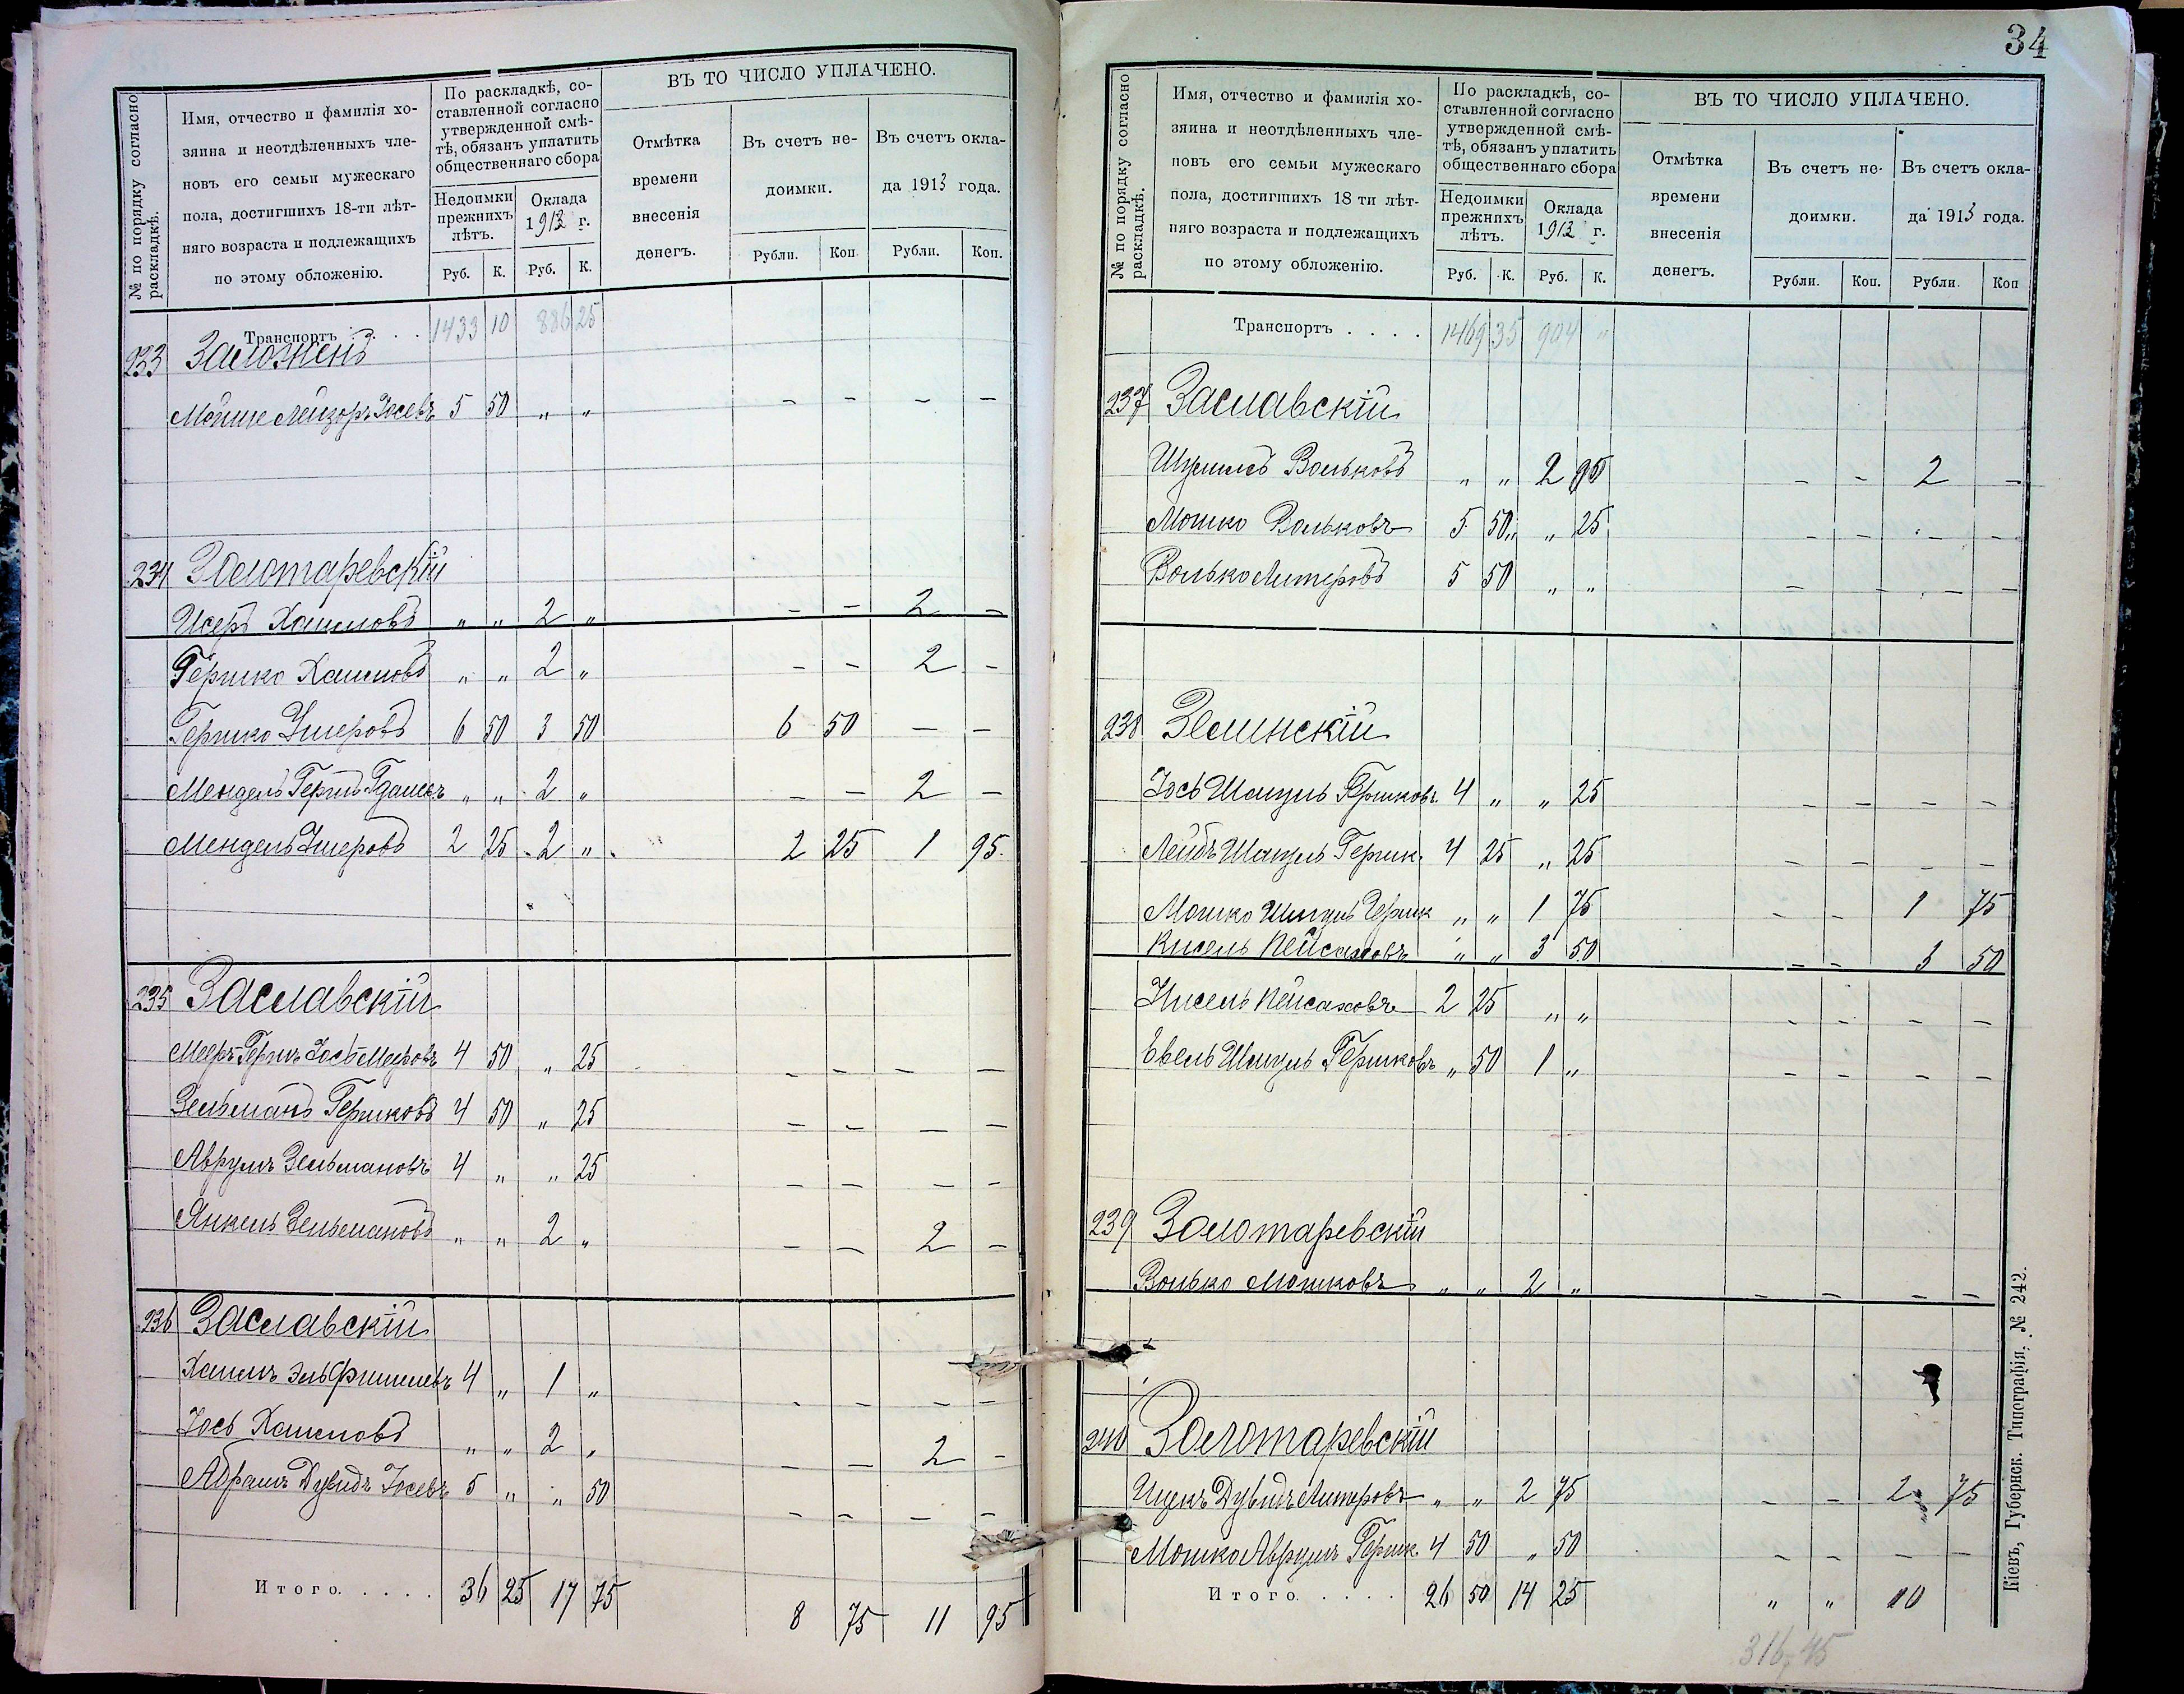 № по порядку согласно раскладкѣ.
Имя, отчество и фамилія хо-
зяина и неотдѣленныхъ чле-
новъ его семьи мужескаго
пола, достигшихъ 18-ти лѣт-
няго возраста и подлежащихъ
по этому обложенію.
По раскладкѣ, со-
ставленной согласно
утвержденной смѣ-
тѣ, обязанъ уплатить
общественнаго сбора
Недоимки
прежнихъ
лѣтъ.
Оклада
1913 г.
Руб. К. Руб. К.
ВЪ ТО ЧИСЛО УПЛАЧЕНО.
Отмѣтка
времени
внесенія
денегъ.
Въ счетъ не-
доимки.
Въ счетъ окла-
да 1913 года.
Рубли. Коп. Рубли. Коп.
Транспортъ . . . 1433 10 886 25
233
Мойше Лейзоръ Іосевъ 5 50 „ „ – – – –
234 Золотаревскій
Усеръ Хаимовъ „ „ 2 „ – – 2 –
Гершко Хаимовъ „ „ 2 „ – – 2 –
Гершко Ушеровъ 6 50 3 50 6 50 – –
Мендель Гершъ „ „ 2 „ – – 2 –
Мендель Ушеровъ 2 25 2 „ 2 25 1 95
235 Заславскій
Мееръ Гершъ Іось Меровъ 4 50 „ 25 – – – –
Зельманъ Гершковъ 4 50 „ 25 – – – –
Аврумъ Зельмановъ 4 „ „ 25 – – – –
Янкель Зельмановъ „ „ 2 „ – – 2 –
236 Заславскій
Хаимъ Эль Фишелевъ 4 „ 1 „ – – – –
Іось Хаимовъ „ „ 2 „ – – 2 –
Абрамъ Дувидъ Іосевъ 5 „ „ 50 – – – –
Итого. . . . . 36 25 17 75 8 75 11 95
34
№ по порядку согласно раскладкѣ.
Имя, отчество и фамилія хо-
зяина и неотдѣленныхъ чле-
новъ его семьи мужескаго
пола, достигшихъ 18 ти лѣт-
няго возраста и подлежащихъ
по этому обложенію.
По раскладкѣ, со-
ставленной согласно
утвержденной смѣ-
тѣ, обязанъ уплатить
общественнаго сбора
Недоимки
прежнихъ
лѣтъ.
Оклада
1913 г.
Руб. К. Руб. К.
ВЪ ТО ЧИСЛО УПЛАЧЕНО.
Отмѣтка
времени
внесенія
денегъ.
Въ счетъ не-
доимки.
Въ счетъ окла-
да 1913 года.
Рубли. Коп. Рубли. Коп
Транспортъ . . . . 1469 35 904 „
237 Заславскій
Шулимъ Вольковъ „ „ 2 – – 2 –
Мошко Вольковъ 5 50 „ 25 – – – –
Волько Литеровъ 5 50 „ „ – – – –
238 Зелинскій
Іось Шмуль Гершковъ 4 „ „ 25 – – – –
Лейбъ Шмуль Гершк. 4 25 „ 25 – – – –
Мошко Шмуль Гершк „ „ 1 75 – – 1 75
Кисель Пейсаховъ „ „ 3 50 – – 3 50
Нисель Пейсаховъ 2 25 „ „ – – – –
Евель Шмуль Гершковъ „ 50 1 „ – – – –
239 Золотаревскій
Волько Мошковъ „ „ 2 „ – – – –
240 Золотаревскій
Ицекъ Дувидъ Литеровъ „ „ 2 75 – – 2 75
Мошко Аврумъ Гершк. 4 50 „ 50 – – – –
Итого. . . . . 26 50 14 25 „ „ 10
316,45
Кіевъ, Губернск. Типографія, № 242.